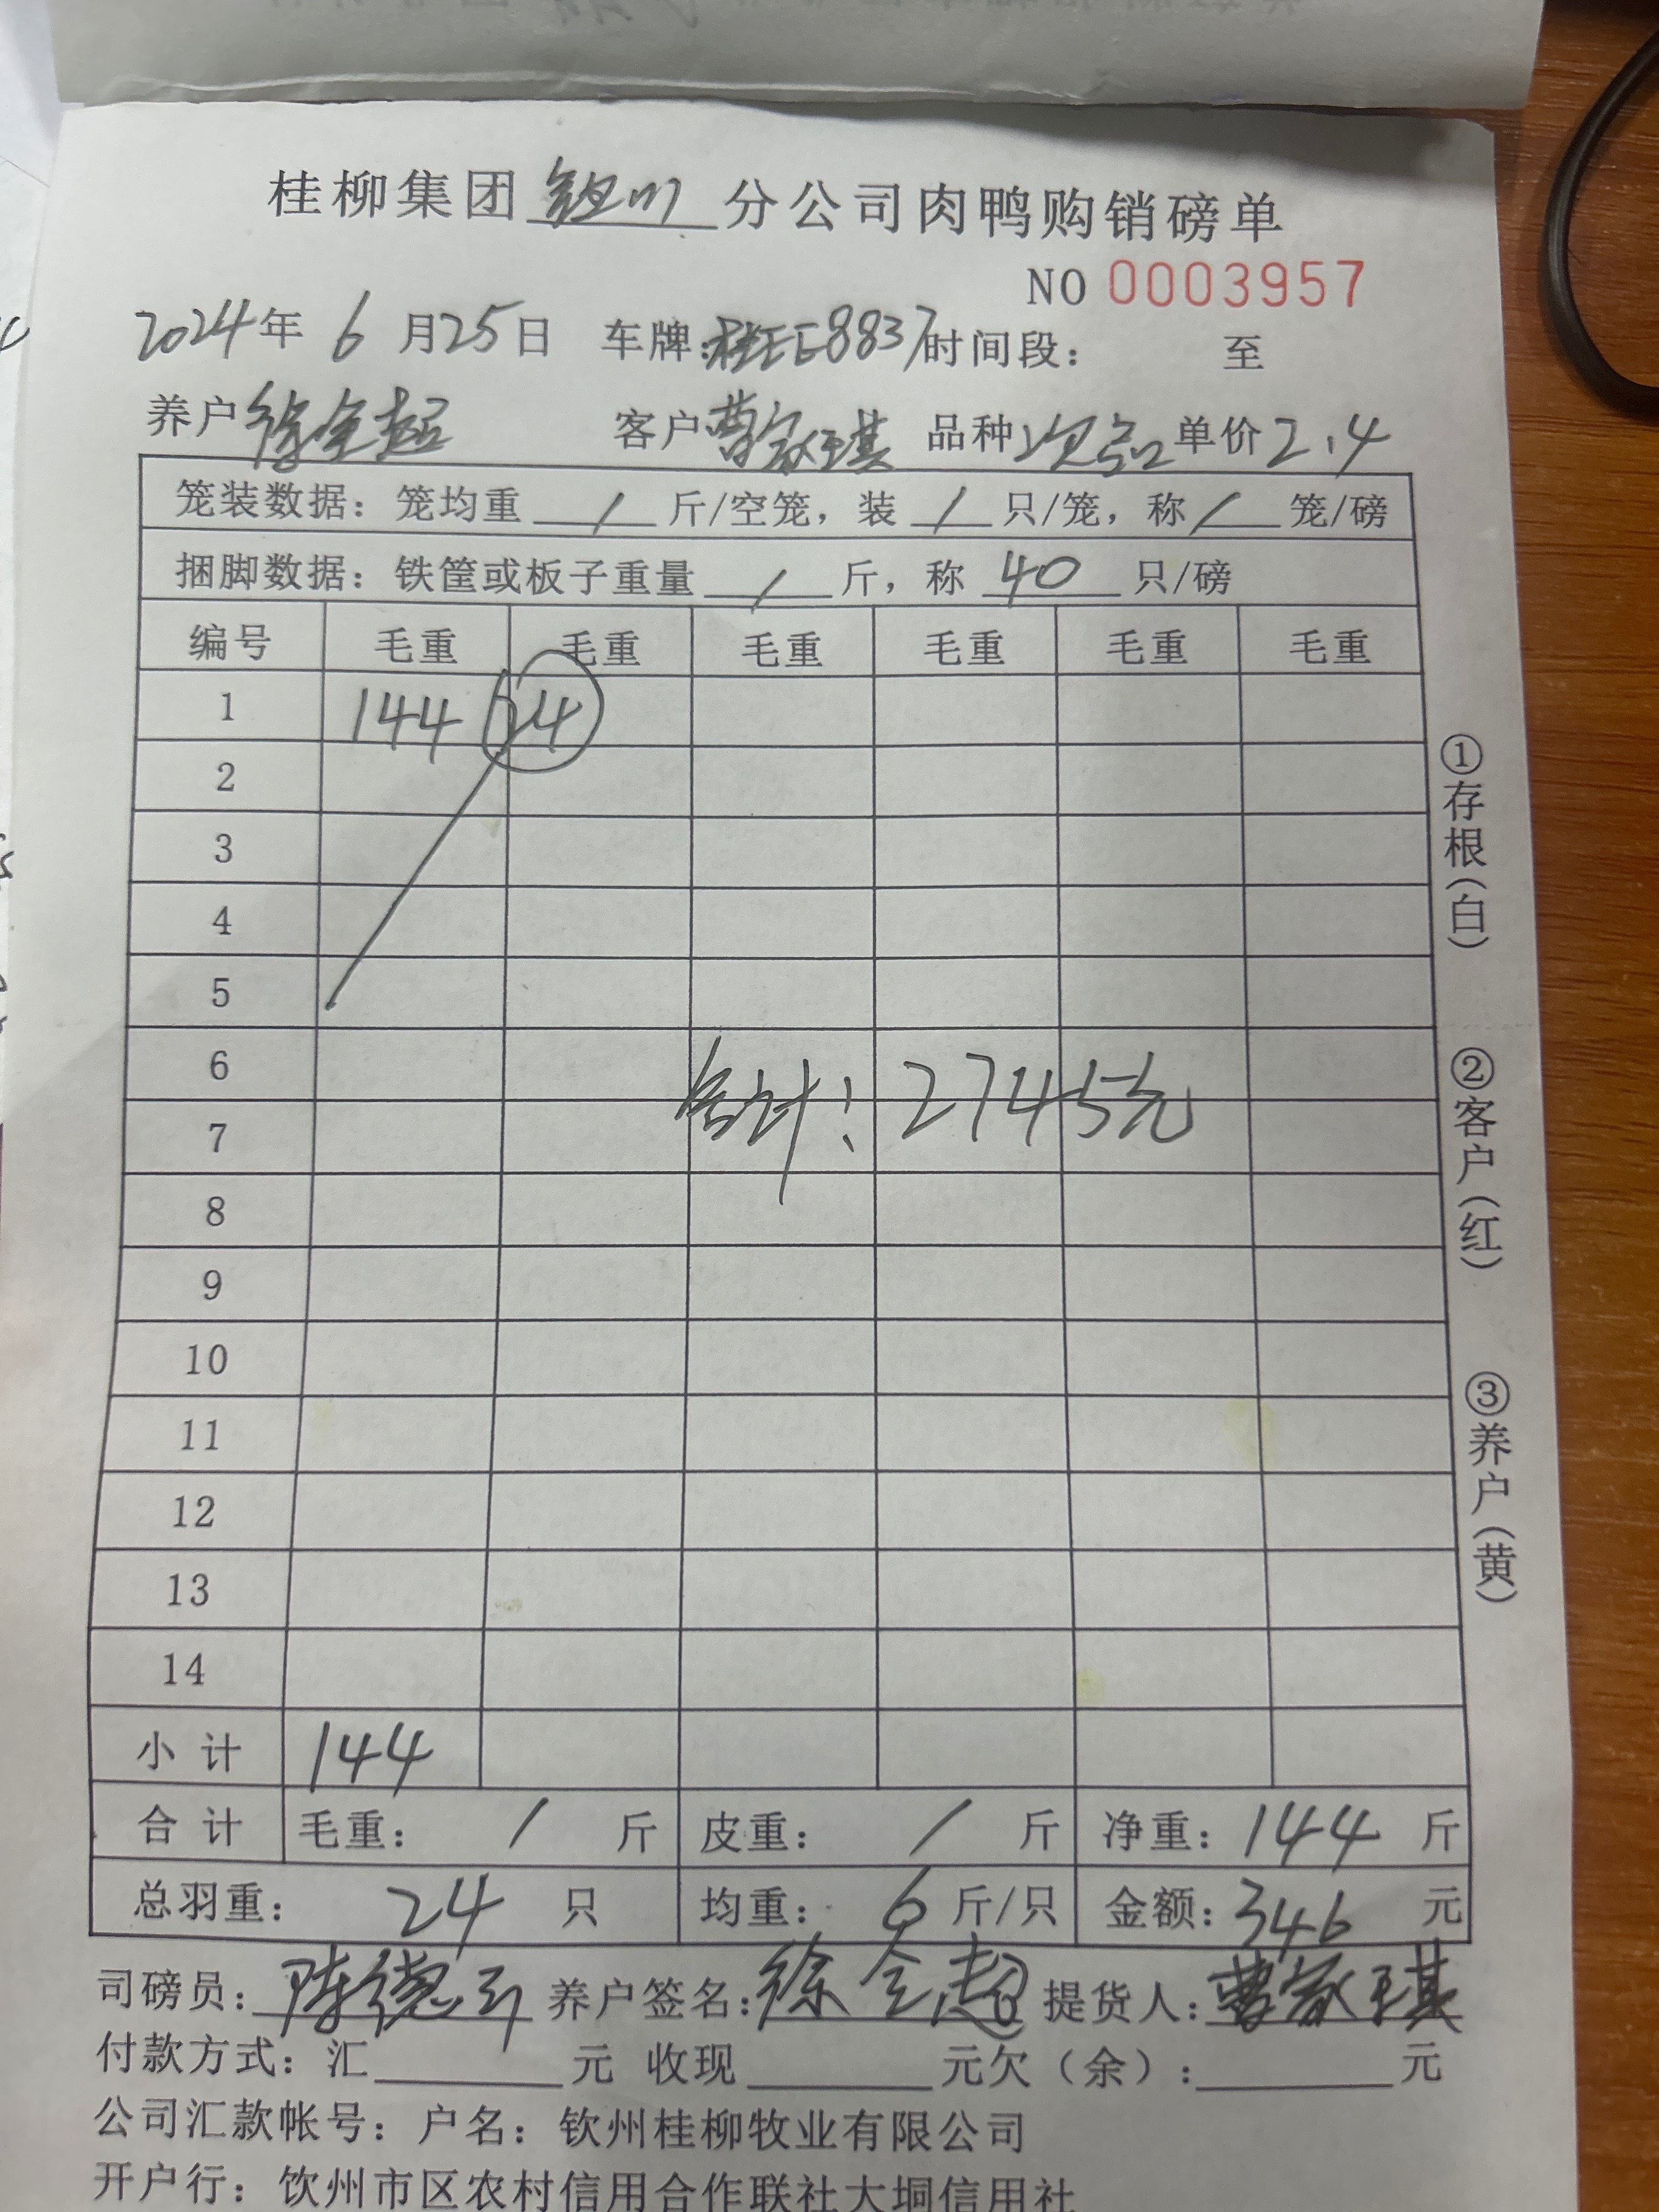 桂柳集团钦州分公司肉鸭购销磅单
NO 0003957
2024年 6月25日 车牌:桂EE8837时间段: 至
养户徐全超 客户曹家琪 品种次品 单价2.4
笼装数据: 笼均重 / 斤/空笼, 装 / 只/笼, 称 / 笼/磅
捆脚数据: 铁筐或板子重量 / 斤, 称 40 只/磅
编号 毛重 毛重 毛重 毛重 毛重 毛重
1 144 24
2
3
4
5
6
合计: 2745元
7
8
9
10
11
12
13
14
小计 144
合计 毛重: / 斤 皮重: / 斤 净重: 144 斤
总羽重: 24 只 均重: 6 斤/只 金额: 346 元
司磅员: 陈德 养户签名: 徐全超 提货人: 曹家琪
付款方式: 汇 元 收现 元欠(余): 元
公司汇款帐号: 户名: 钦州桂柳牧业有限公司
开户行: 钦州市区农村信用合作联社大垌信用社
①存根(白)
②客户(红)
③养户(黄)